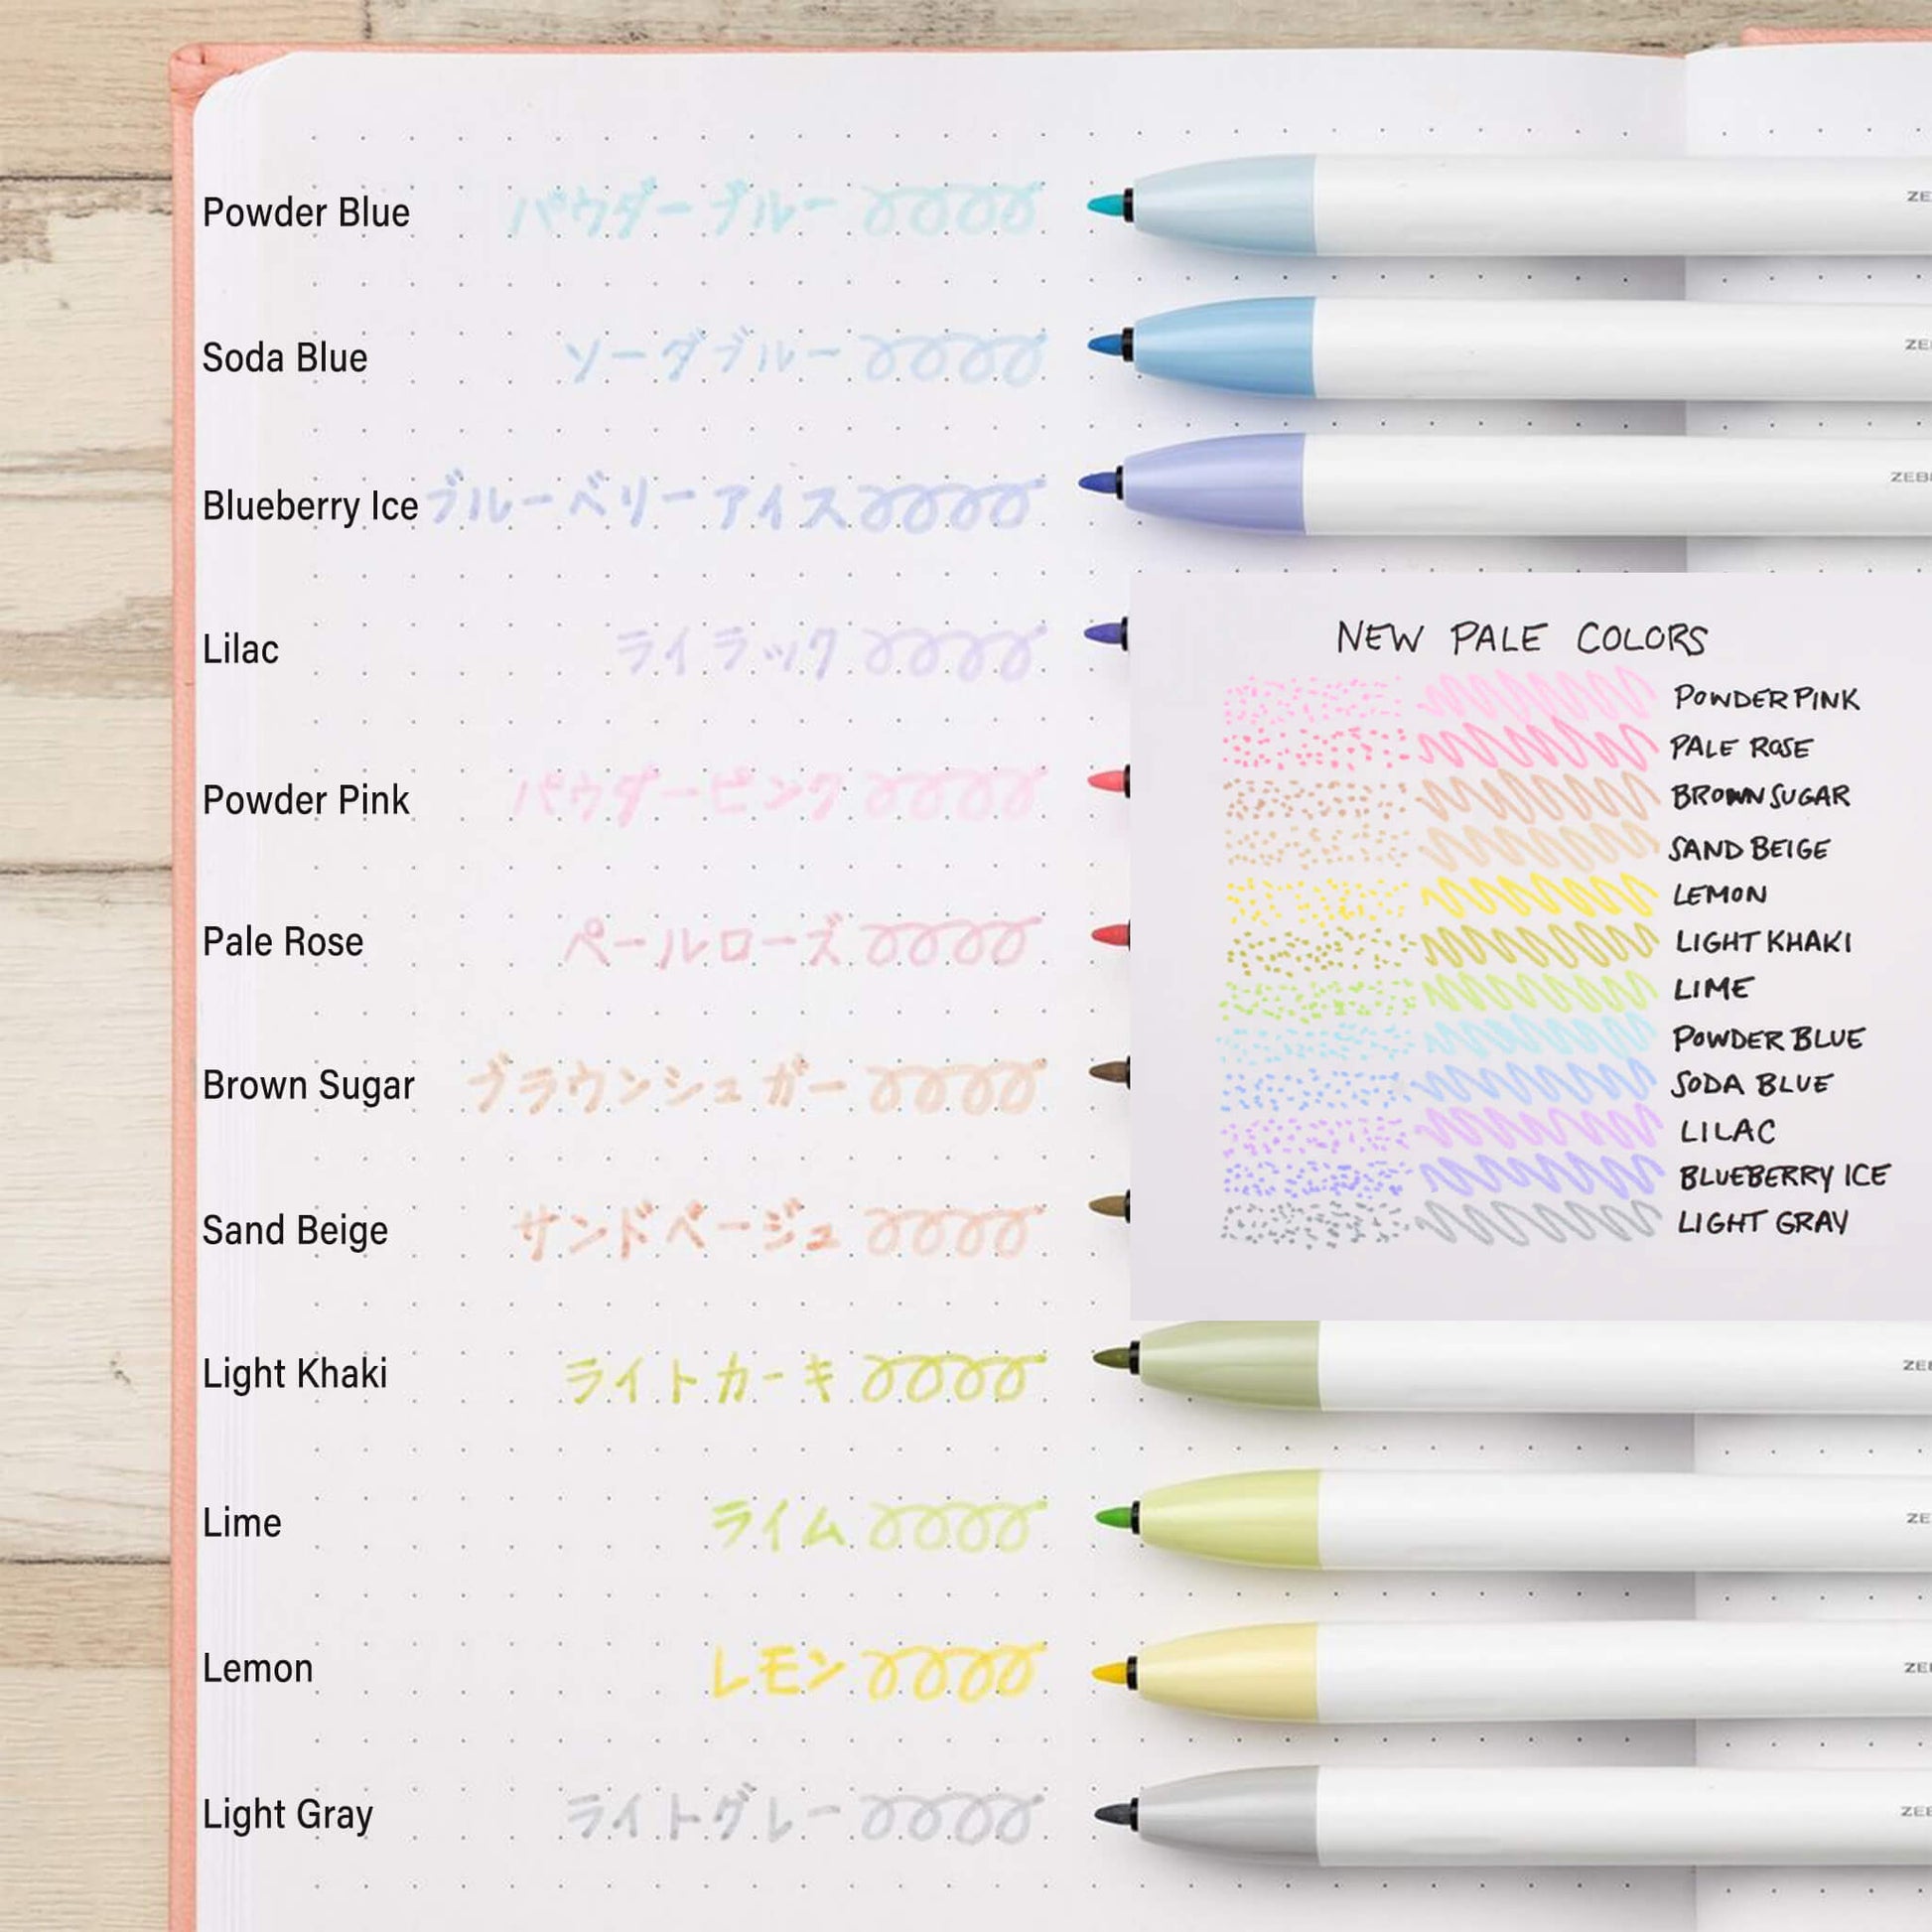 Powder Blue パウダーブルー
ZE
Soda Blue ソーダブルー
ZE
Blueberry Ice ブルーベリーアイス
ZEB
Lilac ライラック
Powder Pink パウダーピンク
Pale Rose ペールローズ
Brown Sugar ブラウンシュガー
Sand Beige サンドベージュ
NEW PALE COLORS
POWDER PINK
PALE ROSE
BROWN SUGAR
SAND BEIGE
LEMON
LIGHT KHAKI
LIME
POWDER BLUE
SODA BLUE
LILAC
BLUEBERRY ICE
LIGHT GRAY
Light Khaki ライトカーキ
ZE
Lime ライム
ZE
Lemon レモン
ZE
Light Gray ライトグレー
ZE